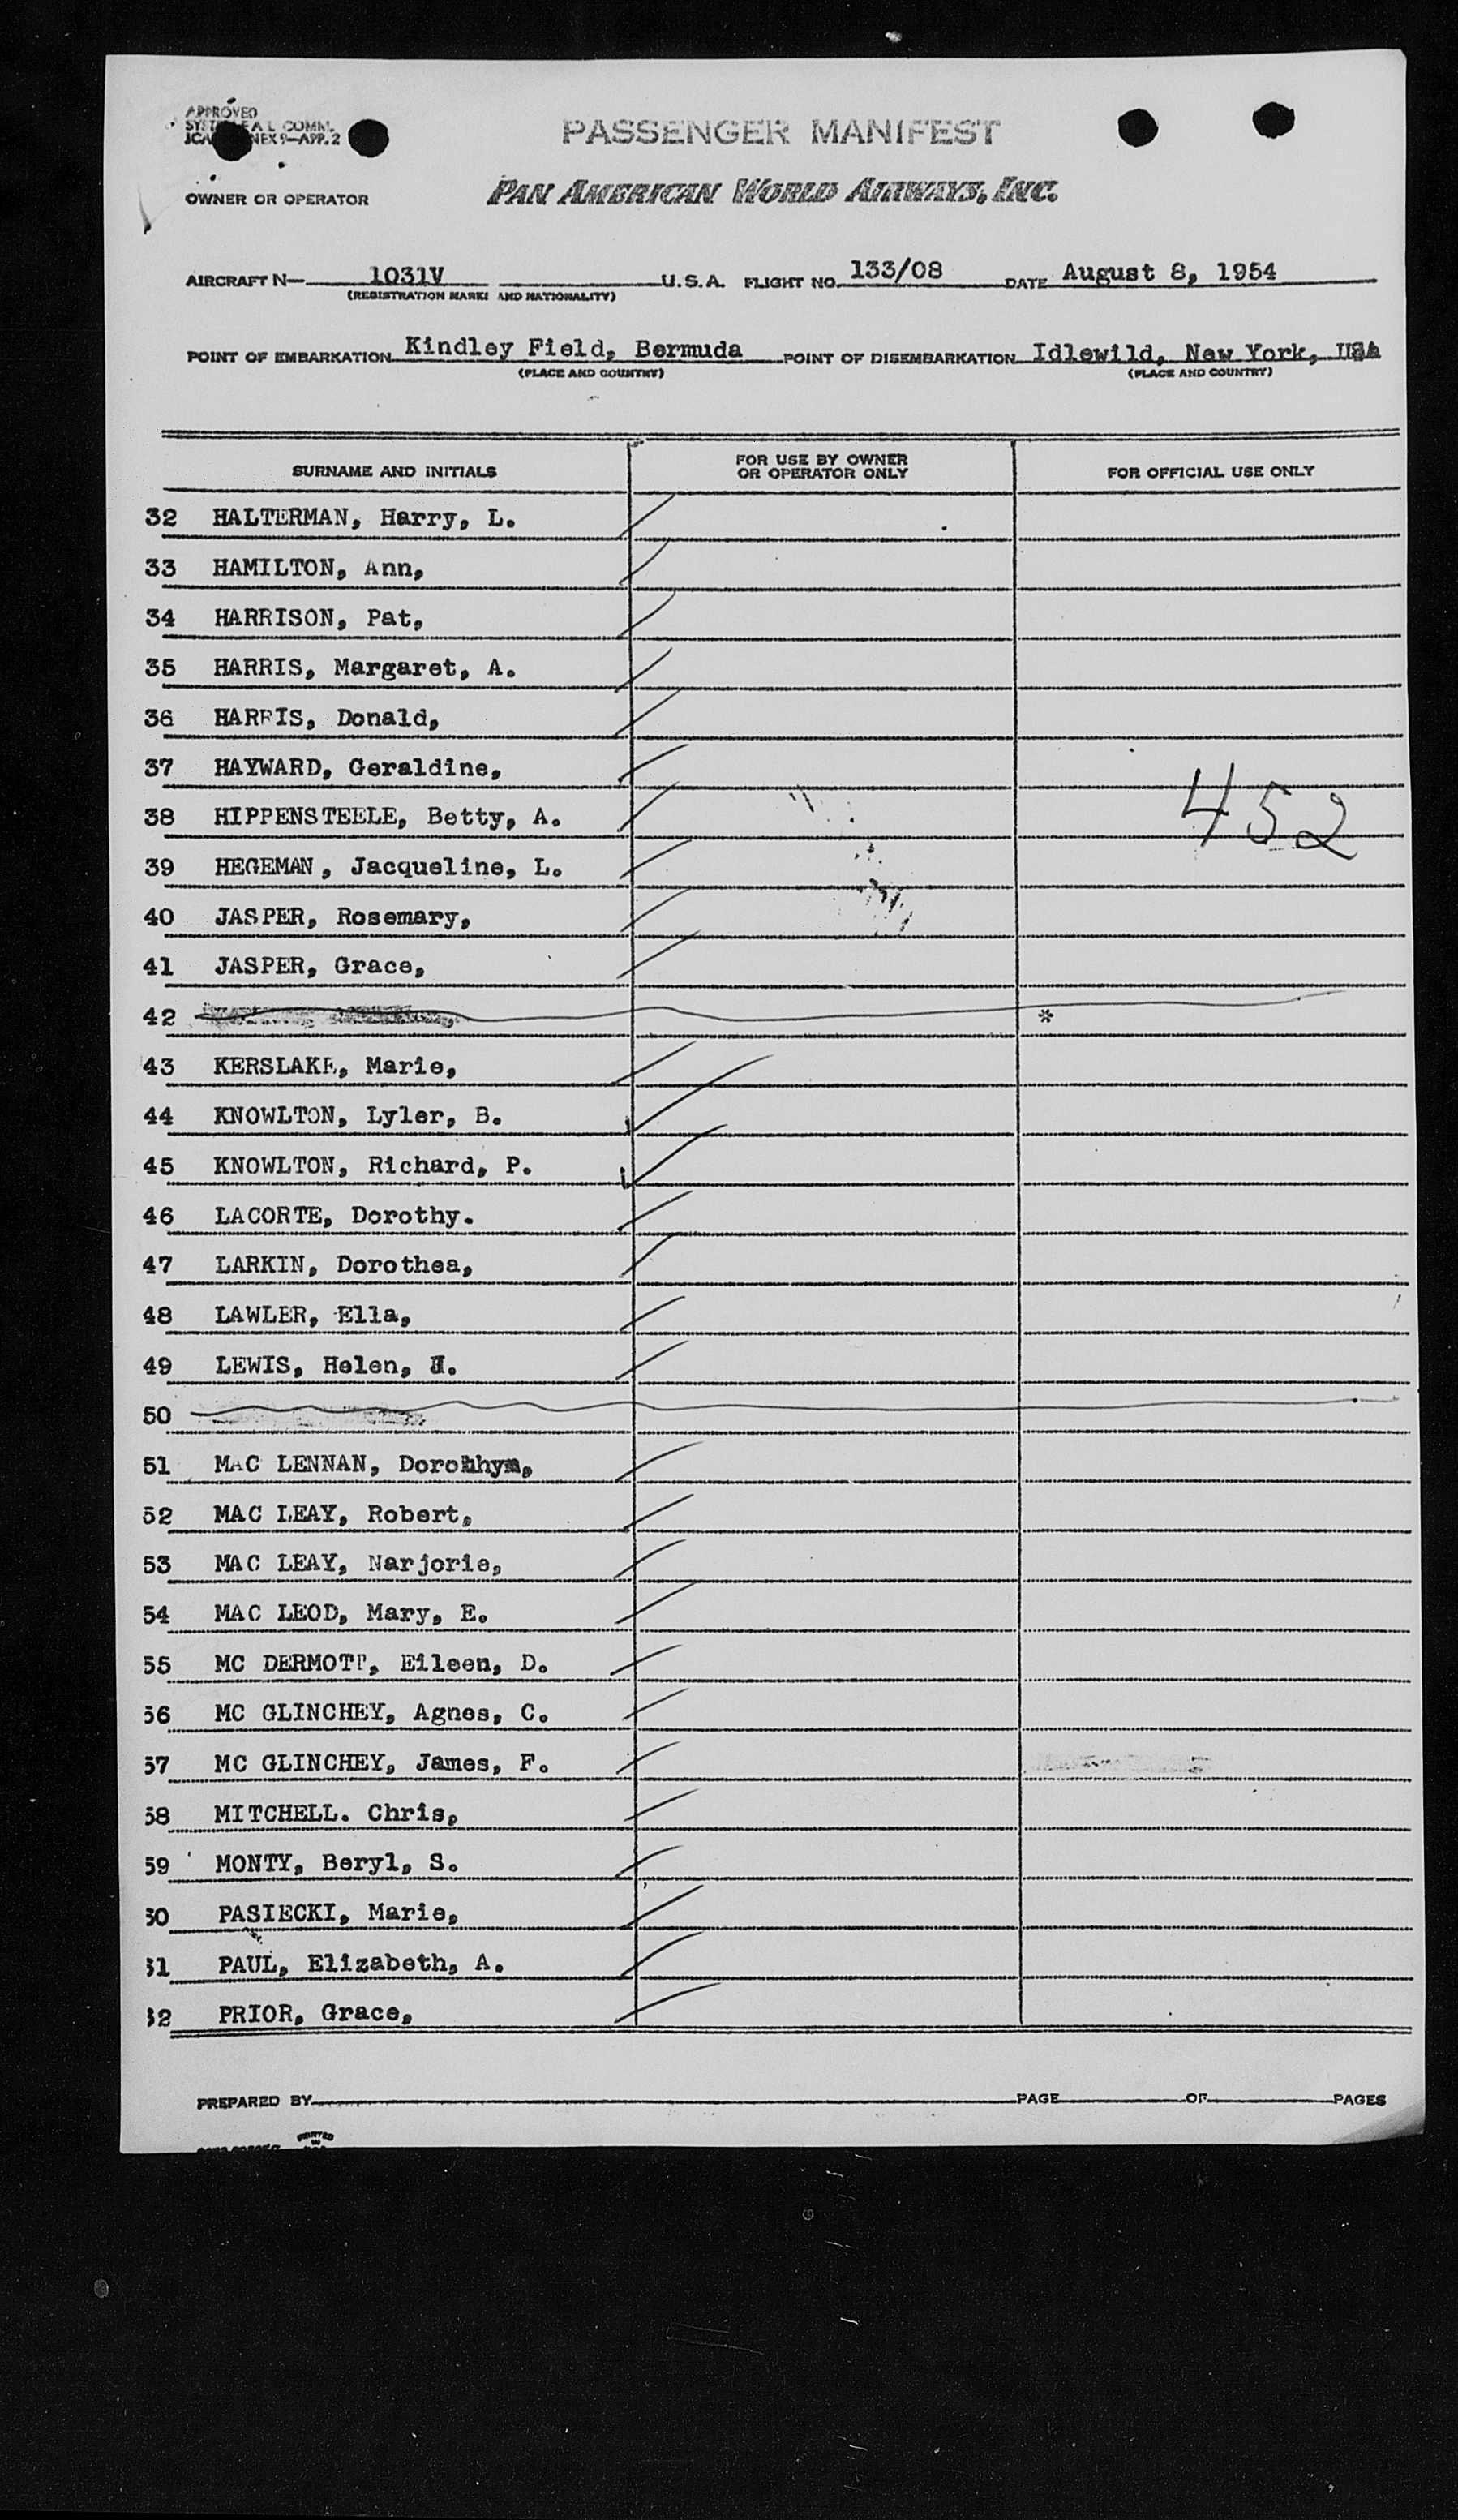 APPROVED
COMM.
APP. 2
PASSENGER MANIFEST
OWNER OR OPERATOR
PAN AMERICAN WORLD AIRWAYS, INC.
AIRCRAFT N— 1031V U.S.A. FLIGHT NO. 133/08 DATE August 8, 1954
(REGISTRATION MARKS AND NATIONALITY)
POINT OF EMBARKATION Kindley Field, Bermuda POINT OF DISEMBARKATION Idlewild, New York, USA
(PLACE AND COUNTRY) (PLACE AND COUNTRY)
SURNAME AND INITIALS FOR USE BY OWNER OR OPERATOR ONLY FOR OFFICIAL USE ONLY
32 HALTERMAN, Harry, L.
33 HAMILTON, Ann,
34 HARRISON, Pat,
35 HARRIS, Margaret, A.
36 HARRIS, Donald,
37 HAYWARD, Geraldine,
452
38 HIPPENSTEELE, Betty, A.
39 HEGEMAN, Jacqueline, L.
40 JASPER, Rosemary,
41 JASPER, Grace,
42 *
43 KERSLAKE, Marie,
44 KNOWLTON, Lyler, B.
45 KNOWLTON, Richard, P.
46 LACORTE, Dorothy.
47 LARKIN, Dorothea,
48 LAWLER, Ella,
49 LEWIS, Helen,
50
51 MAC LENNAN,
52 MAC LEAY, Robert,
53 MAC LEAY, Narjorie,
54 MAC LEOD, Mary, E.
55 MC DERMOTT, Eileen, D.
56 MC GLINCHEY, Agnes, C.
57 MC GLINCHEY, James, F.
58 MITCHELL. Chris,
59 MONTY, Beryl, S.
60 PASIECKI, Marie,
61 PAUL, Elizabeth, A.
62 PRIOR, Grace,
PREPARED BY PAGE OF PAGES
PRINTED
IN